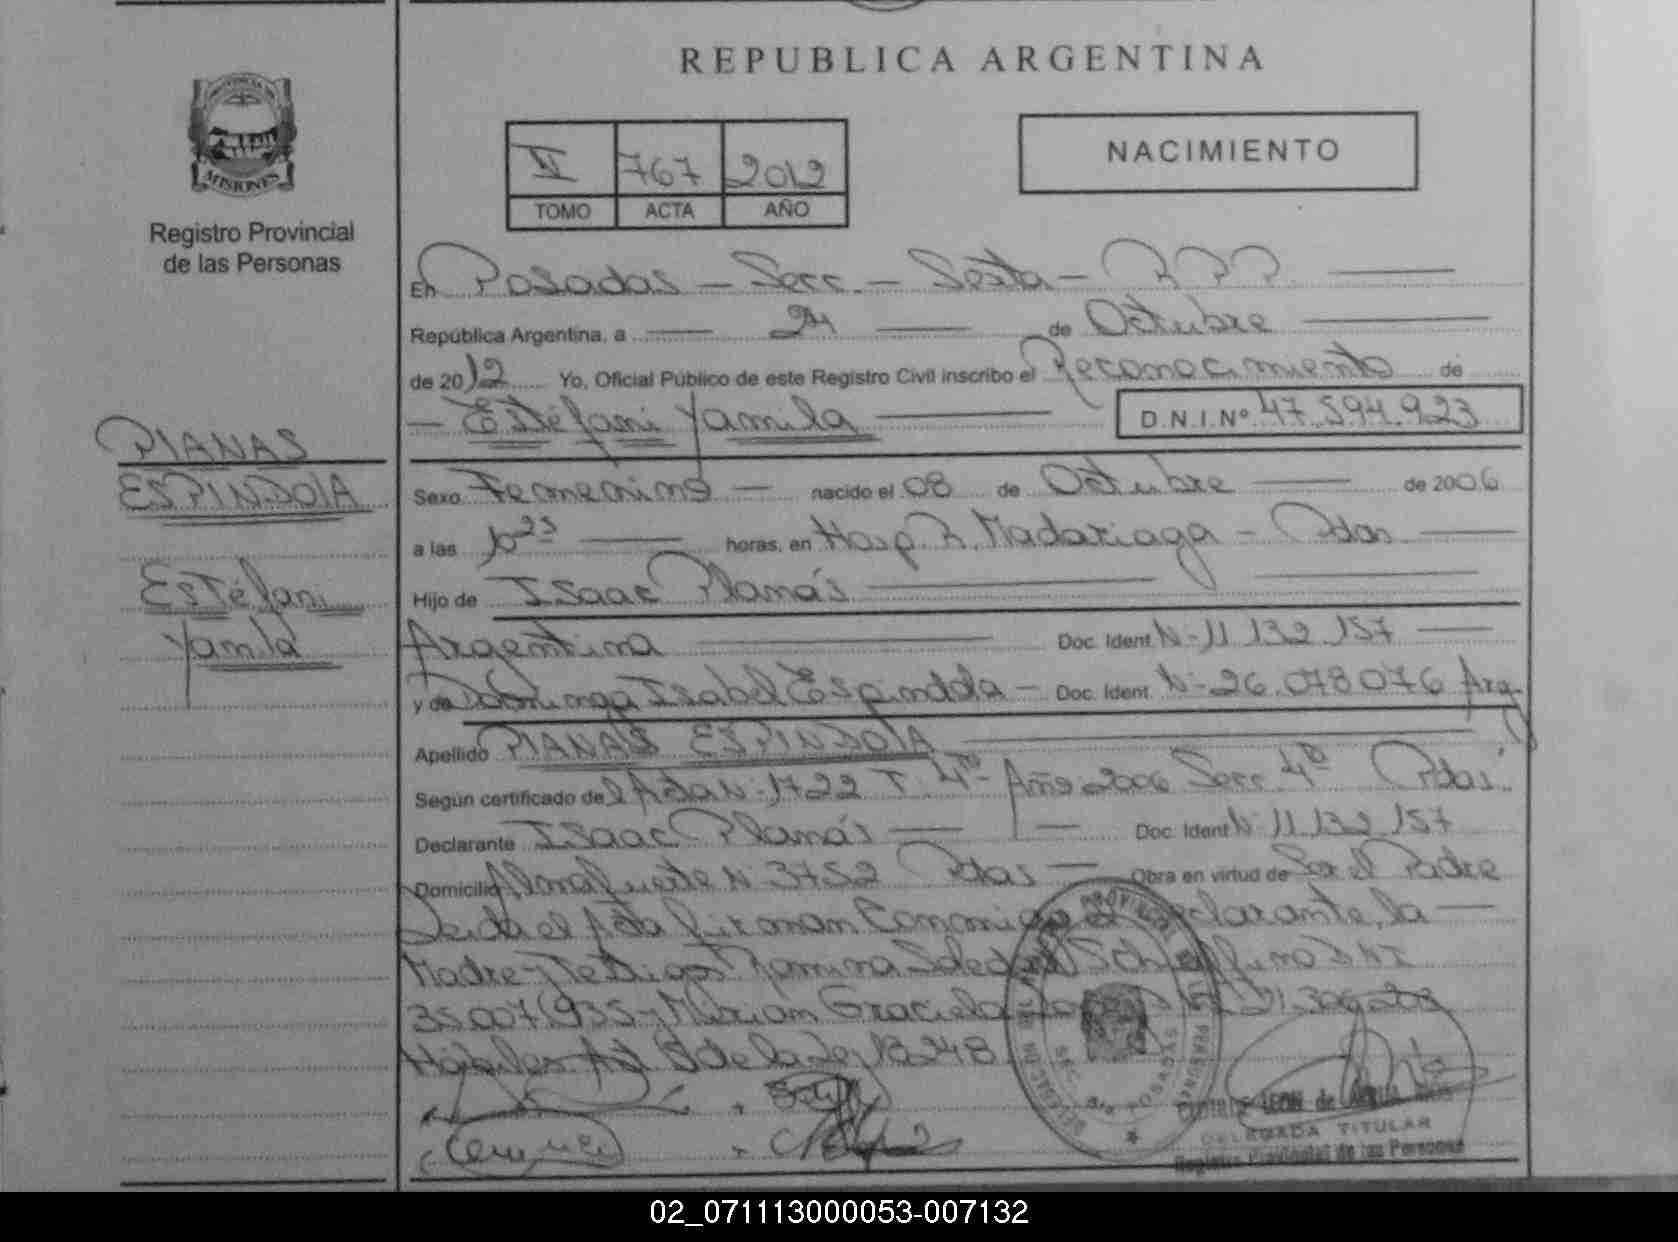 REPUBLICA ARGENTINA
MISIONES
Registro Provincial
de las Personas
VI 767 2012
TOMO ACTA AÑO
NACIMIENTO
En Posadas - Secc. - Sexta - R P P.
República Argentina, a 24 de Octubre
de 2012 Yo, Oficial Público de este Registro Civil inscribo el Reconocimiento de
Estéfani Yamila D.N.I.Nº 47.594.923
PLANAS
ESPINDOLA
Estéfani
Yamila
Sexo Femenino - nacido el 08 de Octubre de 2006
a las 10 25 horas, en Hosp R. Madariaga - Pdas
Hijo de Isaac Planás
Argentina Doc. Ident N- 11 132 157
y de Dominga Isabel Espindola - Doc. Ident. N- 26.078076 Arg.
Apellido PLANAS ESPINDOLA
Según certificado del Acta N- 1722 T. 4º- Año 2006 Secc. 4º Pdas.
Declarante Isaac Planás Doc. Ident N 11 132 157
Domicilio Almafuerte N 3752 Pdas Obra en virtud de Ser el Padre
Leida el Acta firman Conmigo el declarante, la
Madre y Testigos Ramina Soledad DNI
35.007.935 y Mirian Graciela
Hábiles Art de la Ley 18.248
DELEGADA TITULAR
Registro Provincial de las Personas
02_071113000053-007132